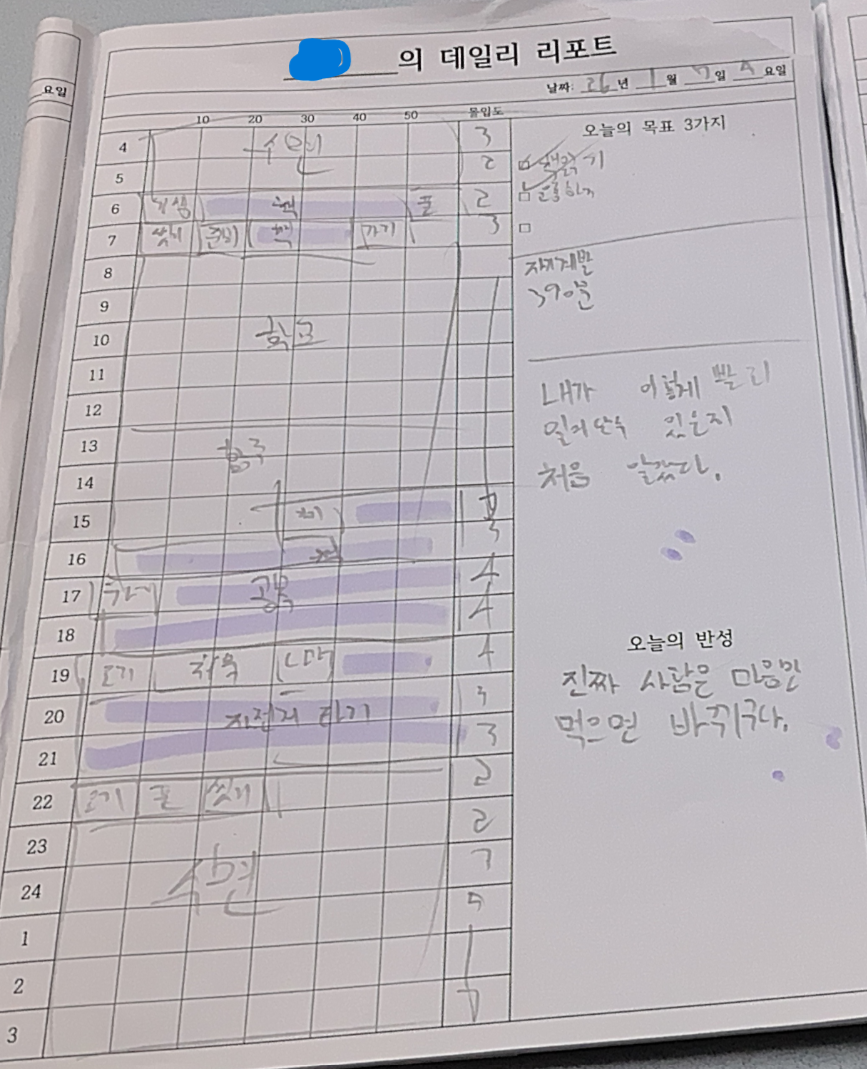 요일
의 데일리 리포트
날짜: 26년 1월 일 요일
10 20 30 40 50 몰입도
오늘의 목표 3가지
4 수면 3
5 2
6 기상 책 폰 2
7 씻기 준비 책 가기 3
8
9
10 학교
11
12
13
14
15
16 책
17 공부 4
18 4
19 오기 저녁 4
20 자전거 타기 3
21 3
22 오기 폰 씻기 2
23 2
24 수면
1
2
3
책읽기
운동하기
자기계발
390분
내가 이렇게 빨리
일어날수 있는지
처음 알았다.
오늘의 반성
진짜 사람은 마음만
먹으면 바뀌구나.